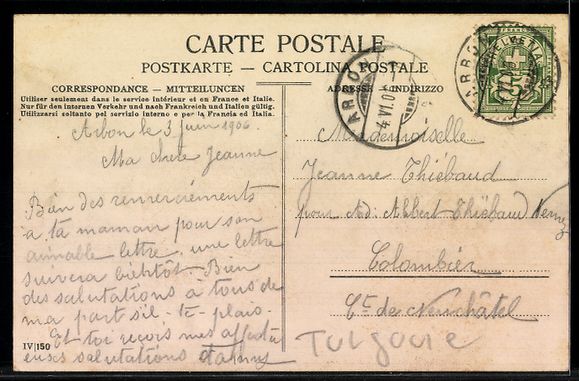 CARTE POSTALE
POSTKARTE — CARTOLINA POSTALE
CORRESPONDANCE — MITTEILUNGEN
Utiliser seulement dans le service intérieur et en France et Italie.
Nur für den internen Verkehr und nach Frankreich und Italien gültig.
Utilizzarsi soltanto pel servizio interno e per la Francia ed Italia.
Arbon le 3 Juin 1906
Ma chère Jeanne
Bien des remerciements
à ta maman pour son
aimable lettre, une lettre
suivera bientôt. Bien
des salutations à tous de
ma part s'il-te-plais.
Et toi reçois mes affectu
euses salutations
IV|150
ADRESSE — INDIRIZZO
Mademoiselle
Jeanne Thiébaud
pour Ad. Albert Thiébaud
Colombier
Ct. de Neuchâtel
Turgovie
ARBON
4.VI.0
FRANCO
HELVETIA
ARBON